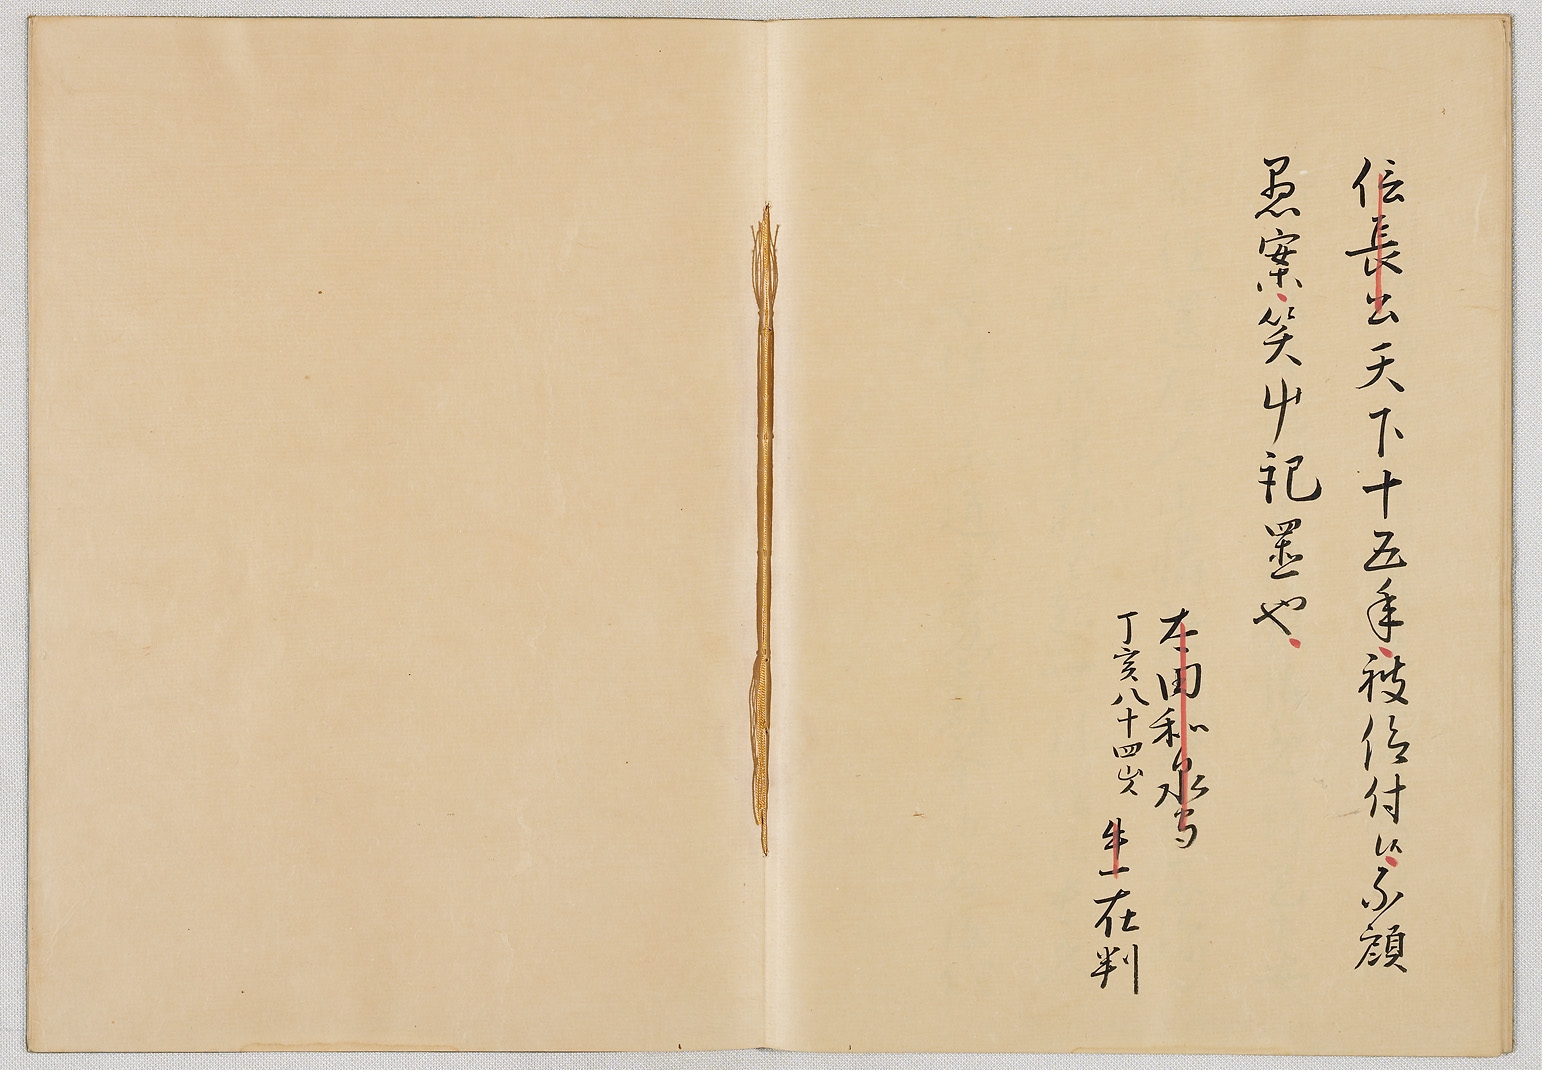 信長公天下十五年被仰付候不顧
愚案笑屮記置也
太田和泉守
丁亥八十四歳 牛一在判